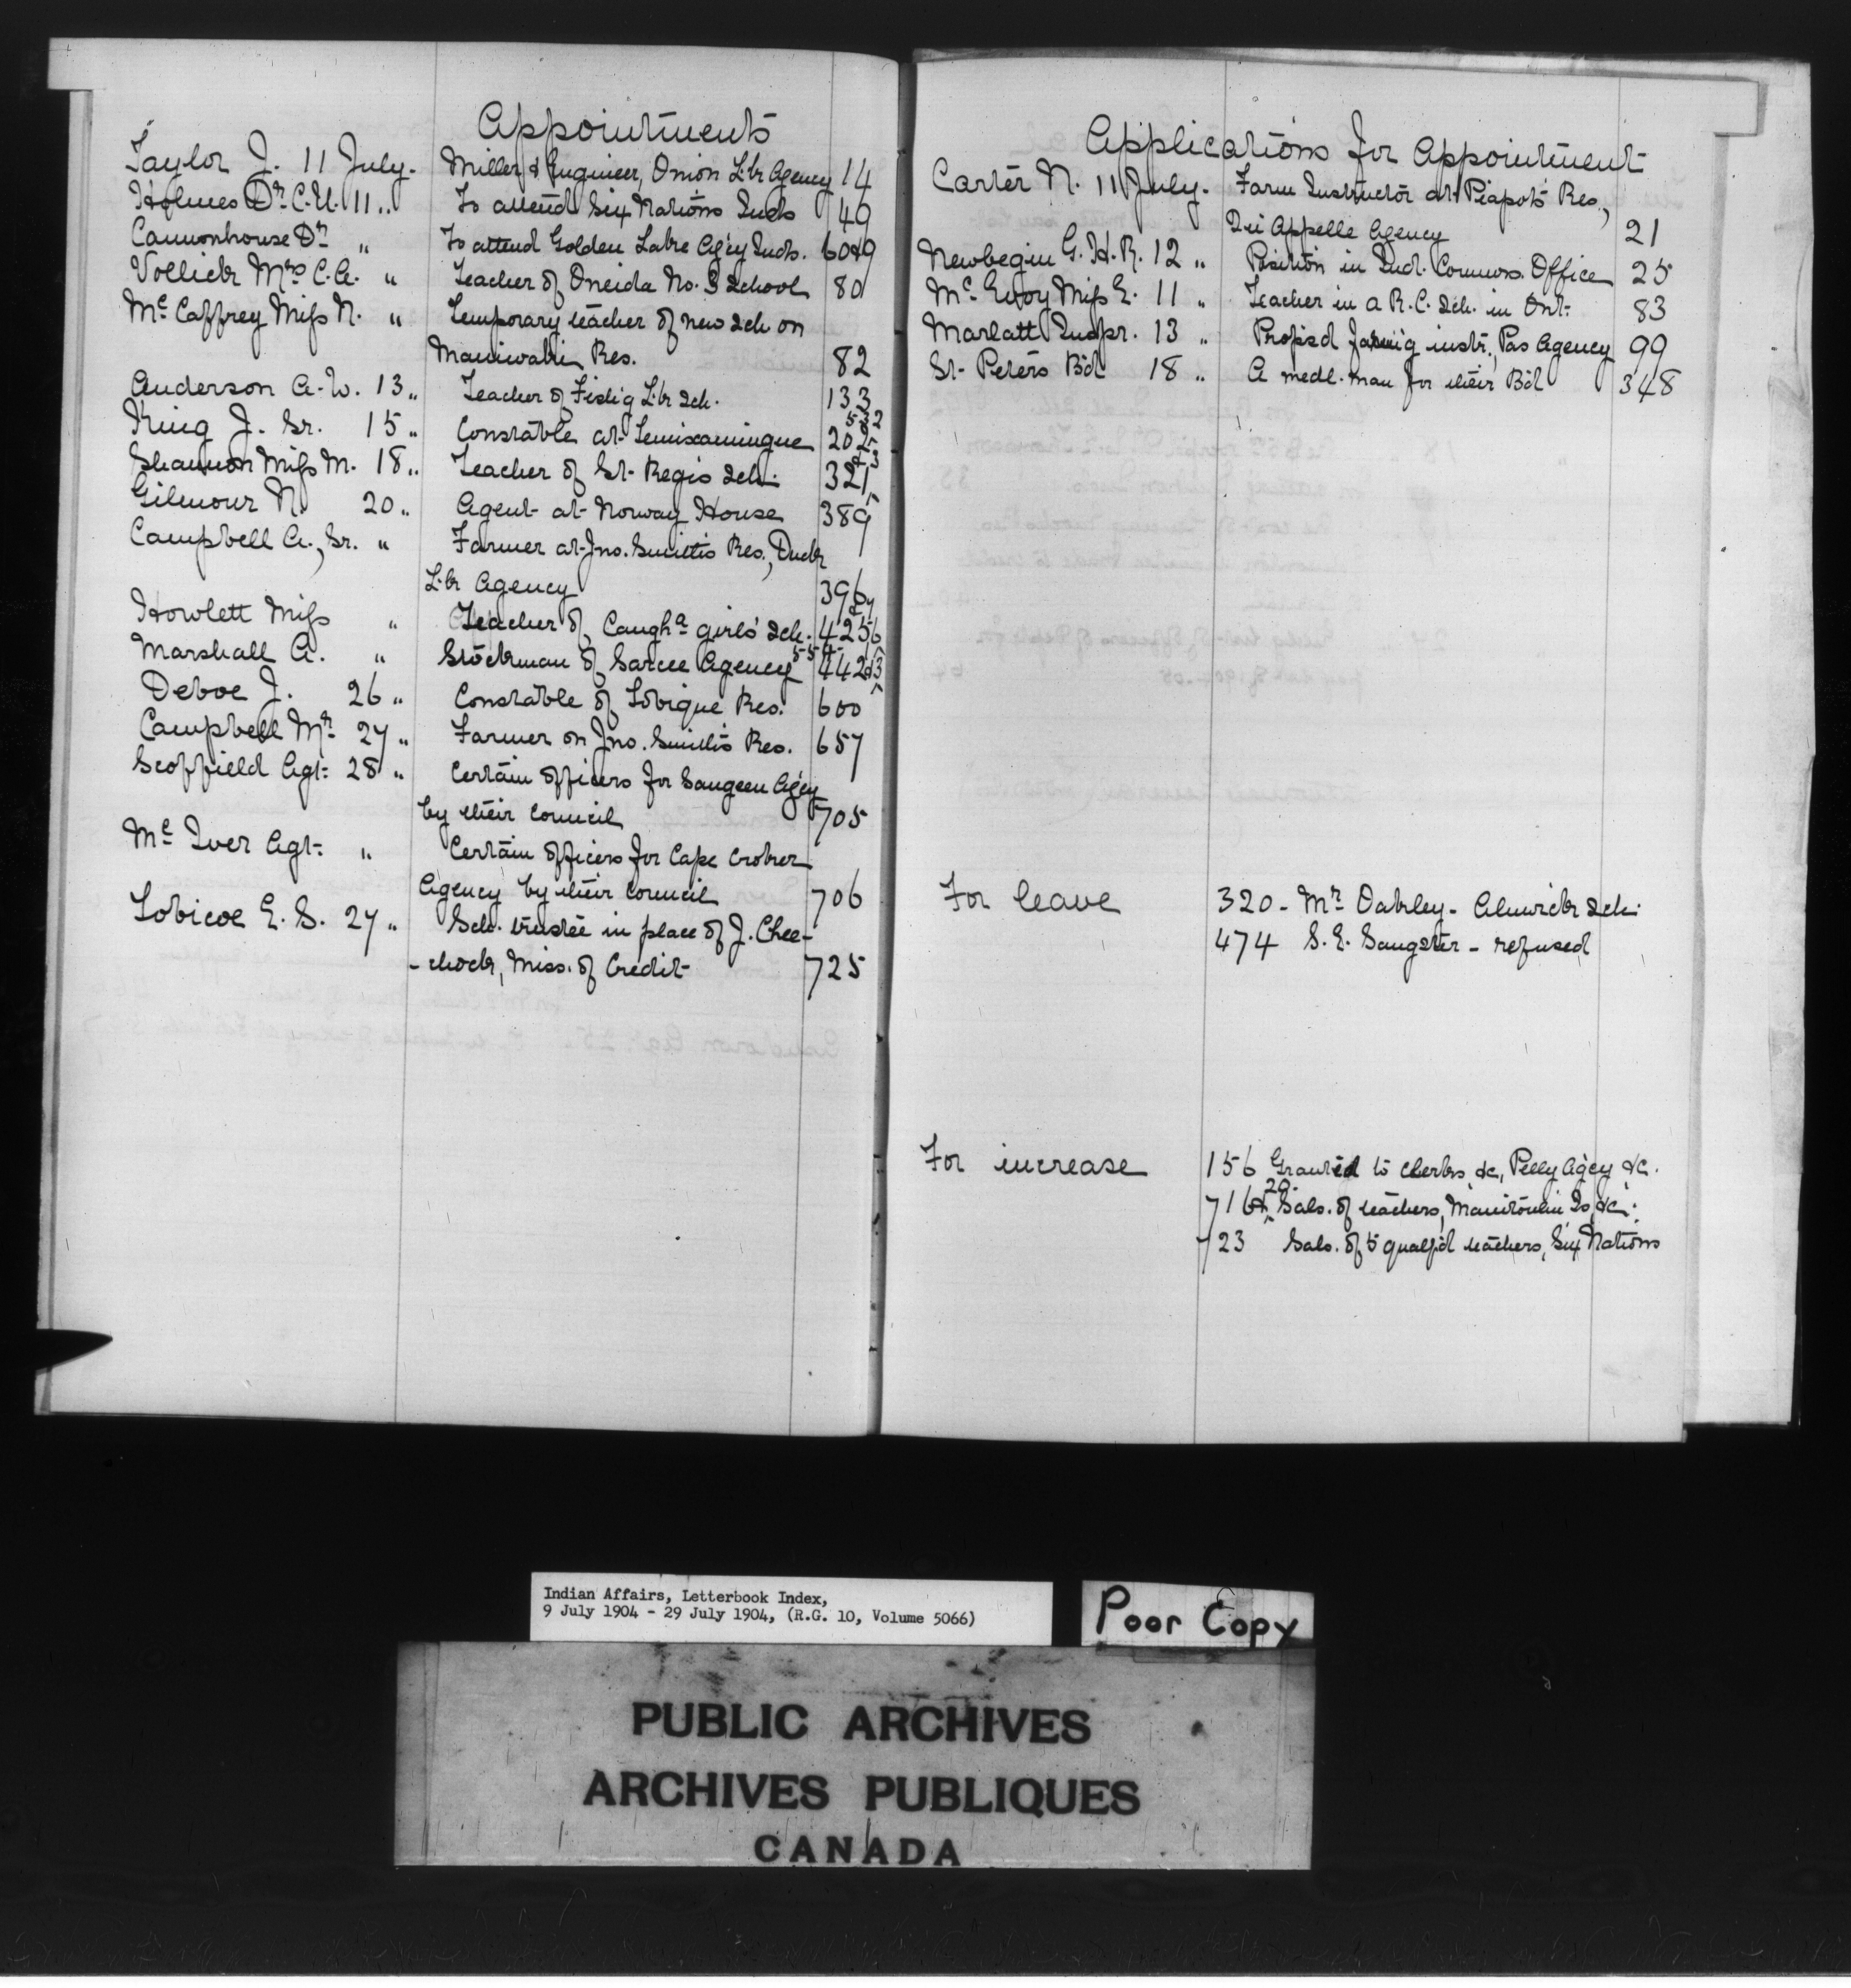 Appointments
Taylor J. 11 July. Miller & Engineer, Onion Lk Agency 14
Holmes Dr. C.U. 11 " To attend Six Nations Inds 49
Cannonhouse Dr " To attend Golden Lake Ag'cy Inds. 60&9
Vollick Mrs C.A. " Teacher of Oneida No. 3 School 80
McCaffrey Miss N. " Temporary teacher of new Sch on
Maniwaki Res. 82
Anderson A.W. 13 " Teacher of Fish'g Lk Sch. 133
King J. Sr. 15 " Constable at Temiscamingue 202
Shannon Miss M. 18 " Teacher of St. Regis Sch. 321
Gilmour N. 20 " Agent at Norway House 389
Campbell A., Sr. " Farmer at Jno. Smith's Res., Duck
Lk Agency 396
Howlett Miss " Teacher of Caugha girls' Sch. 425
Marshall A. " Stockman of Sarcee Agency 442
Deboe J. 26 " Constable of Tobique Res. 600
Campbell Mr 27 " Farmer on Jno. Smith's Res. 657
Scoffield Agt. 28 " Certain officers for Saugeen Ag'cy
by their council 705
McIver Agt. " Certain officers for Cape Croker
Agency by their council 706
Tobicoe E. S. 27 " Sch. trustee in place of J. Chee-
-chock, Miss. of Credit 725
Applications for Appointment
Carter N. 11 July. Farm Instructor at Piapot's Res.,
Qu'Appelle Agency 21
Newbegin G. H. R. 12 " Position in Ind. Commrs. Office 25
McEvoy Miss E. 11 " Teacher in a R.C. Sch. in Ont. 83
Marlatt Inspr. 13 " Propsd farmig instr., Pas Agency 99
St. Peter's B'd 18 " A medl. man for their B'd 348
For leave 320 - Mr Oakley - Alnwick Sch.
474 S. E. Sangster - refused
For increase 156 Granted to clerks &c, Pelly Ag'cy &c.
20.
716& Sals. of teachers, Manitoulin Is, &c.
723 Sals. of 5 qualf'd teachers, Six Nations
Indian Affairs, Letterbook Index,
9 July 1904 - 29 July 1904, (R.G. 10, Volume 5066)
Poor Copy
PUBLIC ARCHIVES
ARCHIVES PUBLIQUES
CANADA